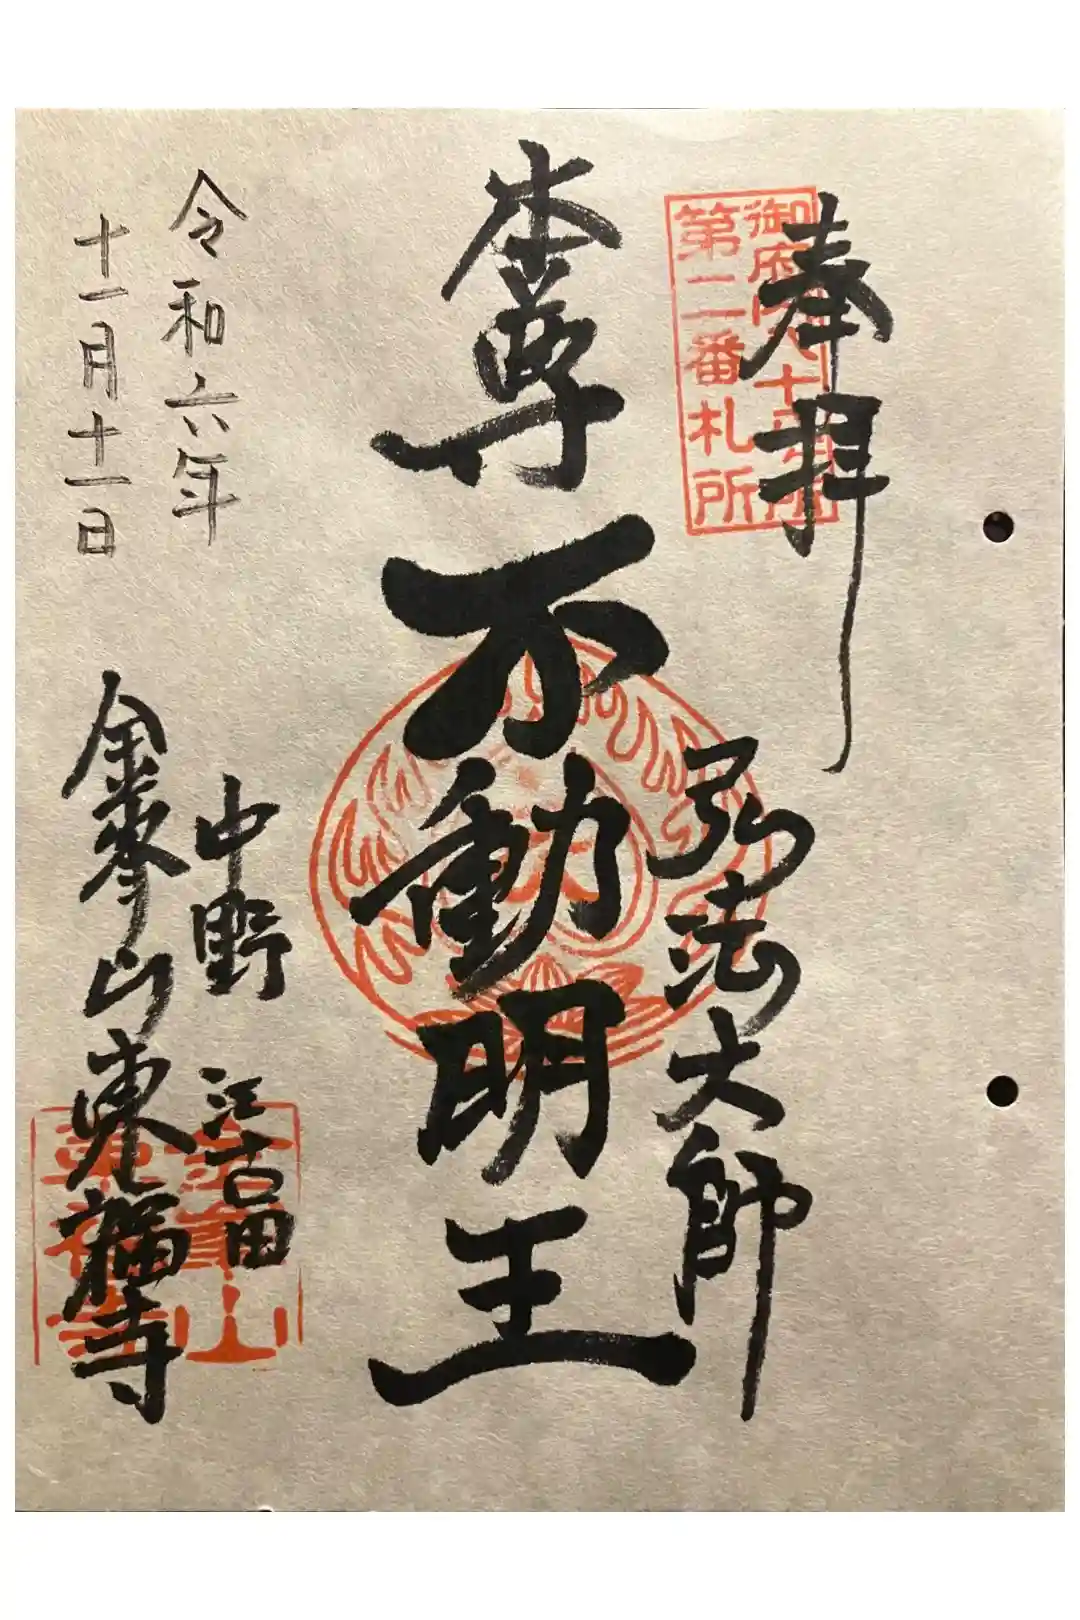 奉拝
御府内八十八ヶ所
第二番札所
弘法大師
本尊
不動明王
令和六年
十一月十一日
中野 江古田
金峯山東福寺